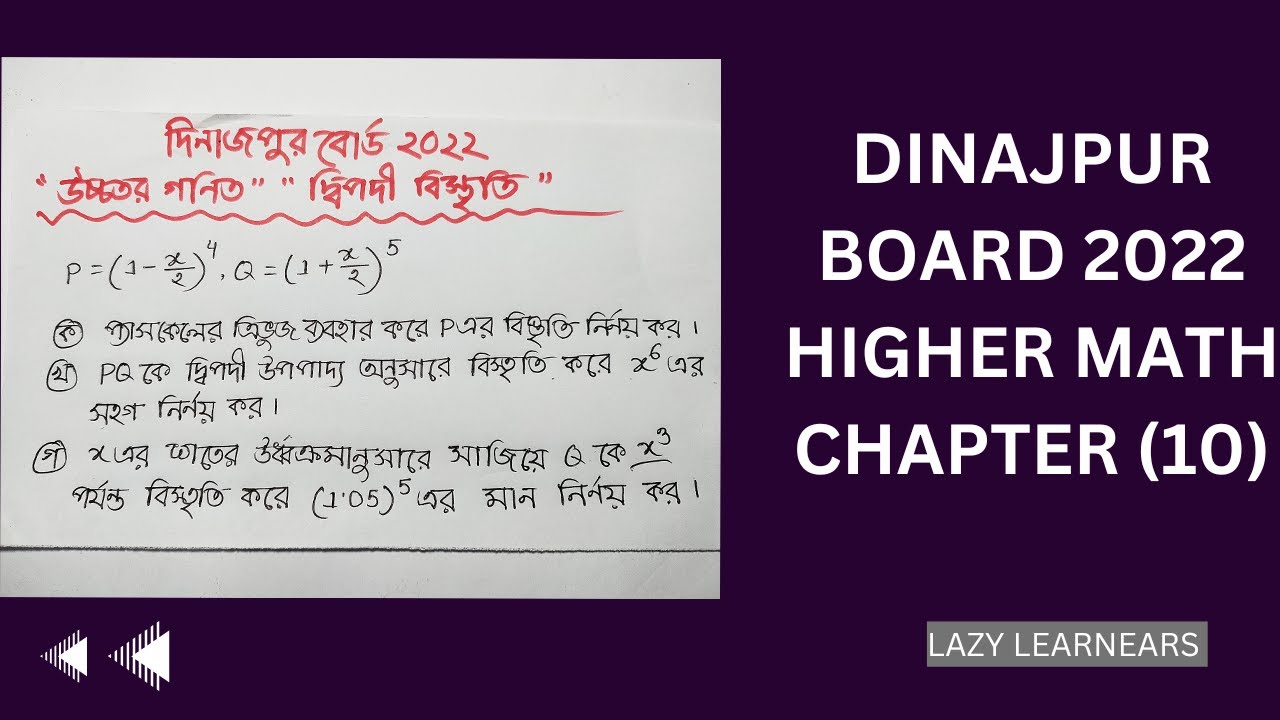 দিনাজপুর বোর্ড ২০২২
"উচ্চতর গনিত" "দ্বিপদী বিস্তৃতি"
P = (1 - x/2)^4, Q = (1 + x/2)^5
(ক) প্যাসকেলের ত্রিভুজ ব্যবহার করে P এর বিস্তৃতি নির্নয় কর।
(খ) PQ কে দ্বিপদী উপপাদ্য অনুসারে বিস্তৃতি করে x^6 এর
সহগ নির্নয় কর।
(গ) x এর ঘাতের উর্ধ্বক্রমানুসারে সাজিয়ে Q কে x^3
পর্যন্ত বিস্তৃতি করে (1.05)^5 এর মান নির্নয় কর।
DINAJPUR
BOARD 2022
HIGHER MATH
CHAPTER (10)
LAZY LEARNEARS